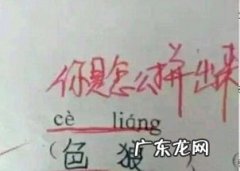 你是怎么拼出来
cè liáng
(色 狼)
广东龙网